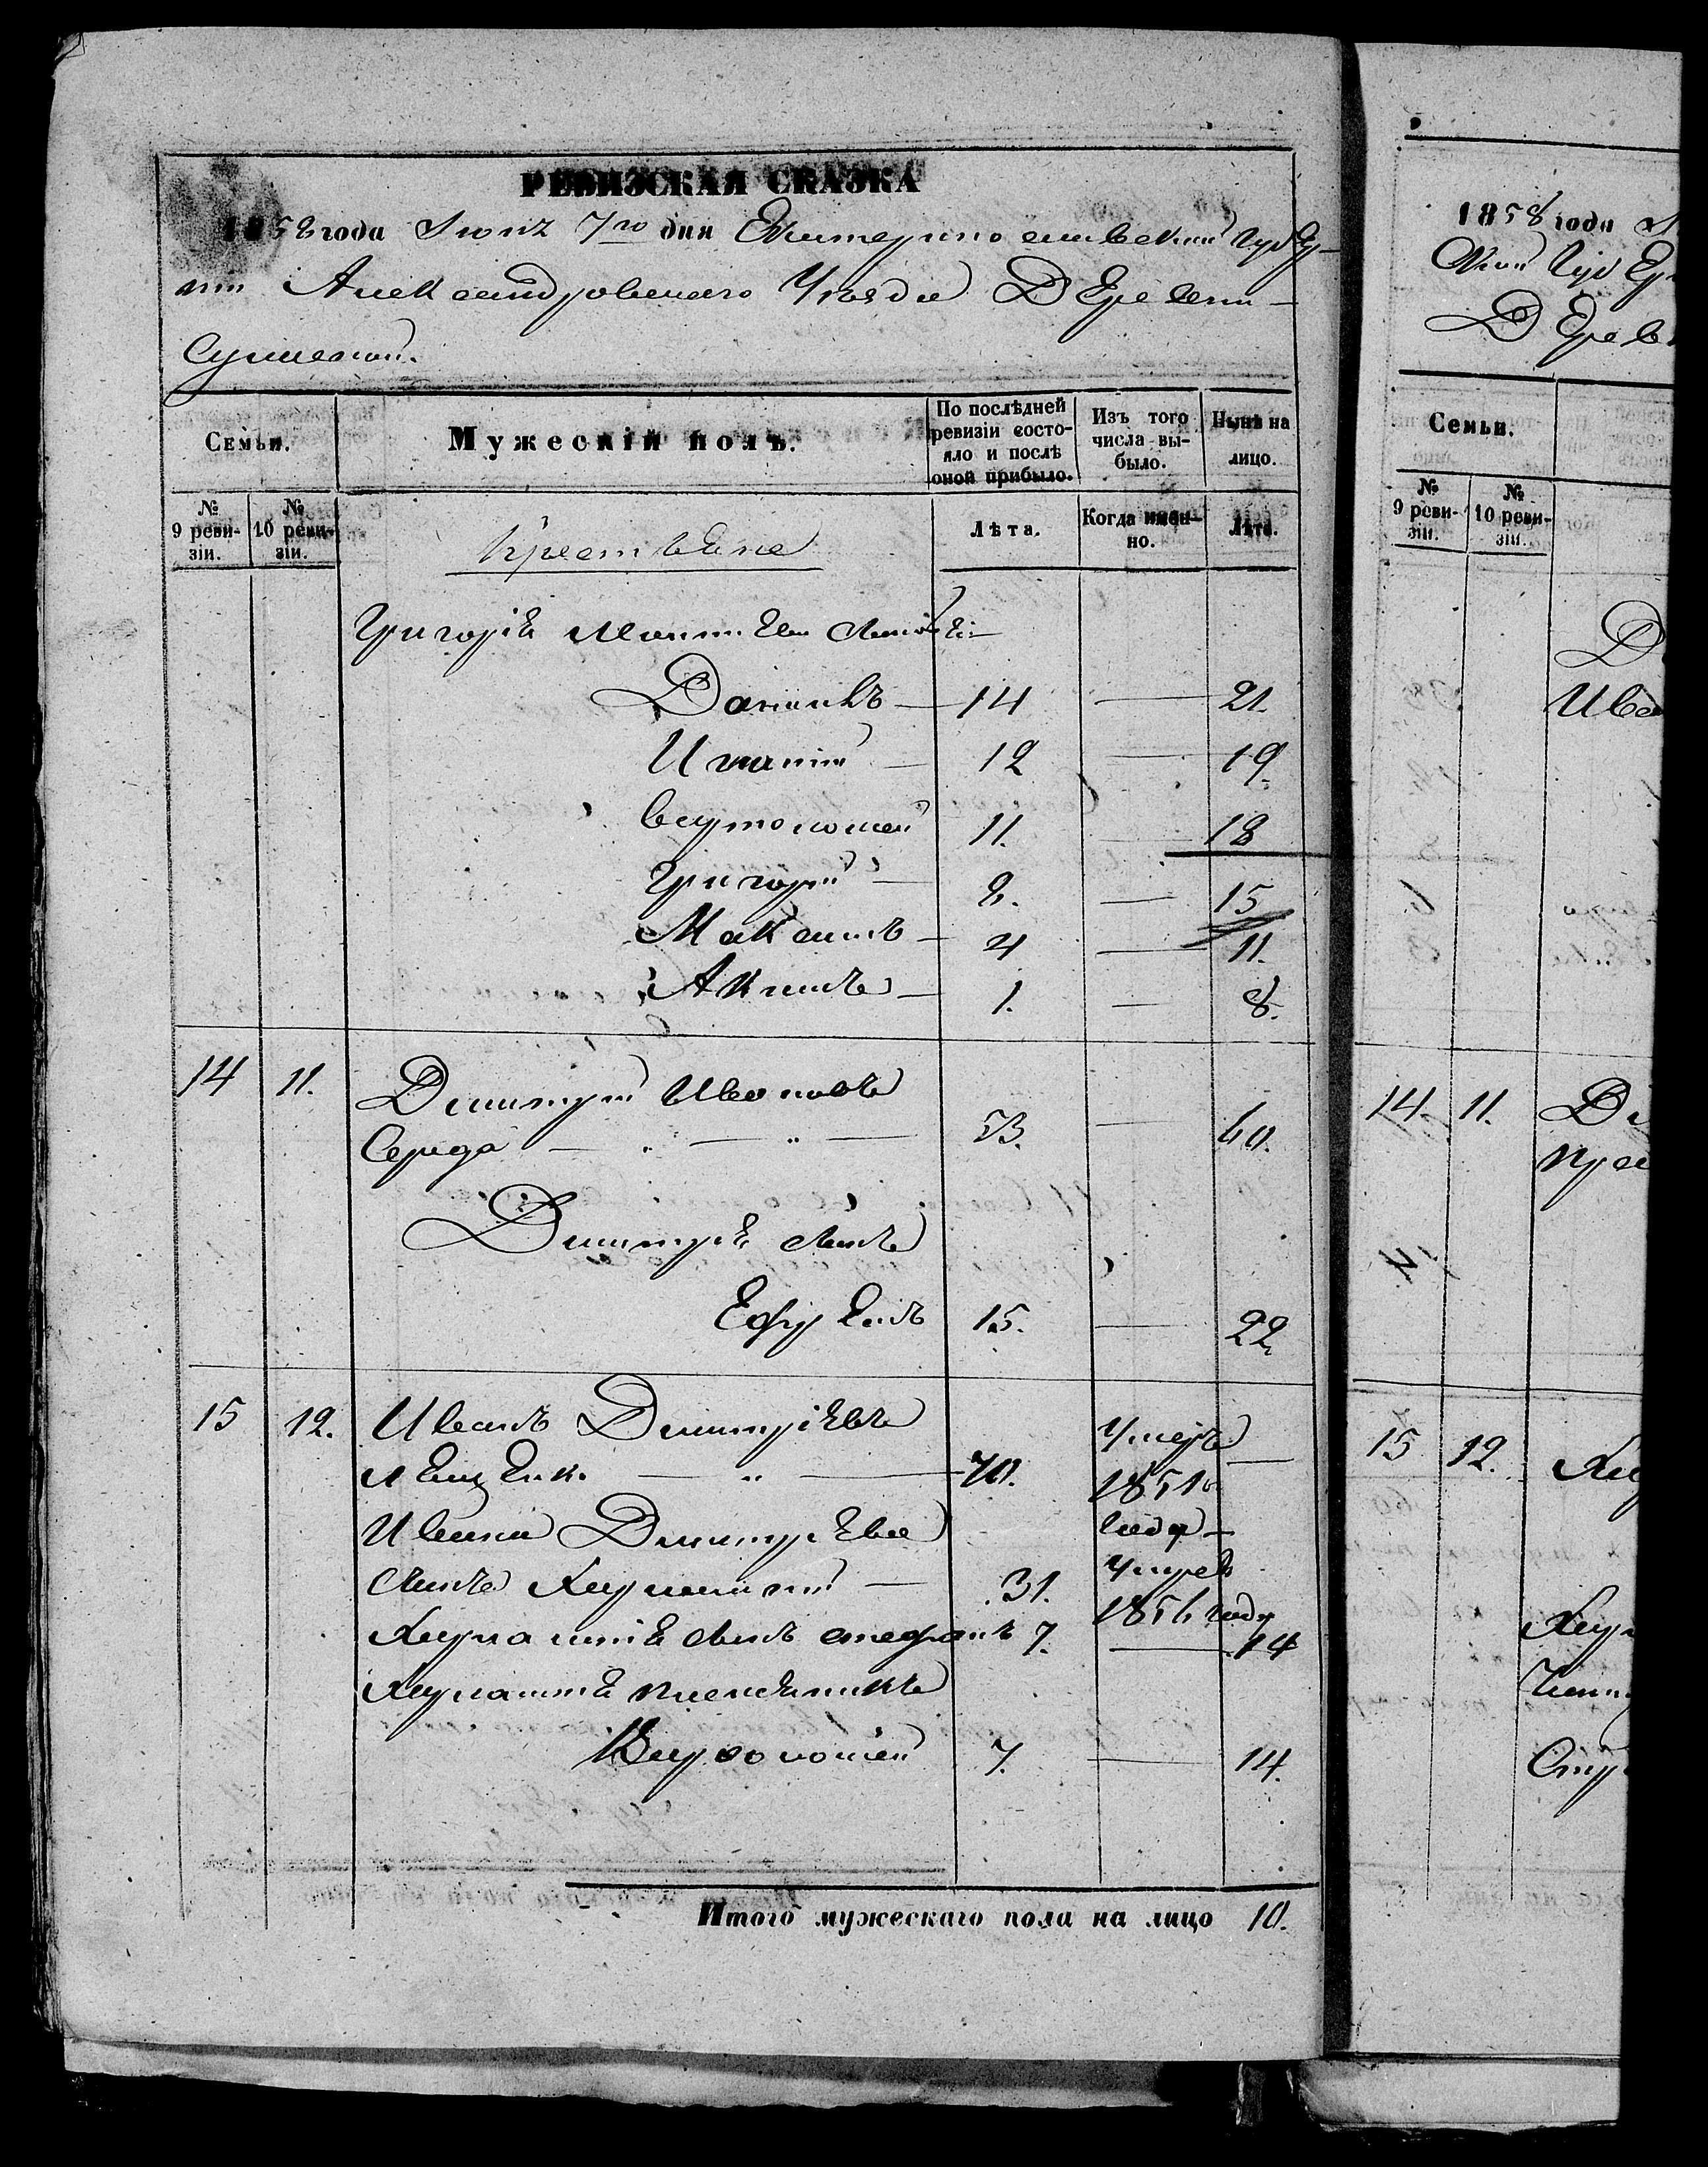 РЕВИЗСКАЯ СКАЗКА
1858 года Іюня 7го дня Екатеринославской Губер-
ніи Александровскаго Уѣзда Деревни
Семьи.
Мужескій полъ.
По послѣдней ревизіи состояло и послѣ оной прибыло.
Изъ того числа выбыло.
Нынѣ на лицо.
№ 9 ревизіи.
№ 10 ревизіи.
Крестьяне
Лѣта.
Когда именно.
Лѣта.
Григорія сыновья
Даніилъ 14 — 21.
Игнатій 12 — 19.
11. — 18
Григорій 8. — 15
Максимъ 4 — 11.
Акимъ 1. — 8.
14 11. Димитрій Ивановъ
Середа 53. — 60.
Димитрія сынъ
Ефремъ 15. — 22.
15 12. Иванъ Димитріевъ Умеръ —
70. 1851го
Ивана Димитріева года
сынъ Харлампій 31. Умеръ
1856 году
Харлампія сынъ Стефанъ 7. — 14
Харлампія племянникъ
Варфоломей 7. — 14.
Итого мужескаго пола на лицо 10.
1858 года
Ской Губ Ер
Дерев
Семьи.
№ 9 ревизіи.
№ 10 ревизіи.
Ива
14. 11. Ди
15 12.